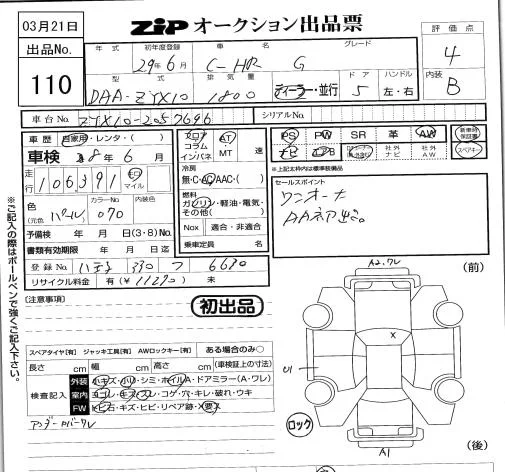 03月21日
ZIP オークション出品票
出品No.
110
年式
初年度登録
車名
グレード
29年6月
C-HR G
型式
排気量
ドア
ハンドル
DAA-ZYX10
1800
ディーラー・並行
5
左・右
評価点
4
内装
B
車台No.
ZYX10-2057696
シリアルNo.
車歴
自家用・レンタ・( )
車検
8年6月
走行
106,391
マイル
色
(元色
パール)
カラーNo.
070
内装色
予備検 年 月 日(3・8)No.
書類有効期限 年 月 日
登録No. 八王子 330 つ 6630
リサイクル料金 有(¥ 11270) 未
フロア
コラム
インパネ
AT
・
MT
速
冷房
無・C・AC・AAC・( )
燃料
ガソリン・軽油・電気・
その他( )
Nox 適合・非適合
乗車定員 名
PS PW SR 革 AW
ナビ
社外
ナビ
社外
AW
新車時
保証書
スペアキー
*上記太枠内は標準装備品
セールスポイント
ワンオーナ
※ご記入の際はボールペンで強くご記入下さい。
[注意事項]
初出品
スペアタイヤ[有] ジャッキ工具[有] AWロックキー[有] ある場合のみ○
長さ cm 幅 cm 高さ cm (車検証上の寸法)
検査記入
外装 小キズ・小凹・シミ・ホイルA・ドアミラー(A・ワレ)
室内 ヨゴレ・キズ・スレ・コゲ・穴・キレ・破れ・ウキ
FW トビ石・キズ・ヒビ・リペア跡・X要ス
アンダーカバーワレ
(前)
A2.ワレ
X
U1
ロック
A1
(後)